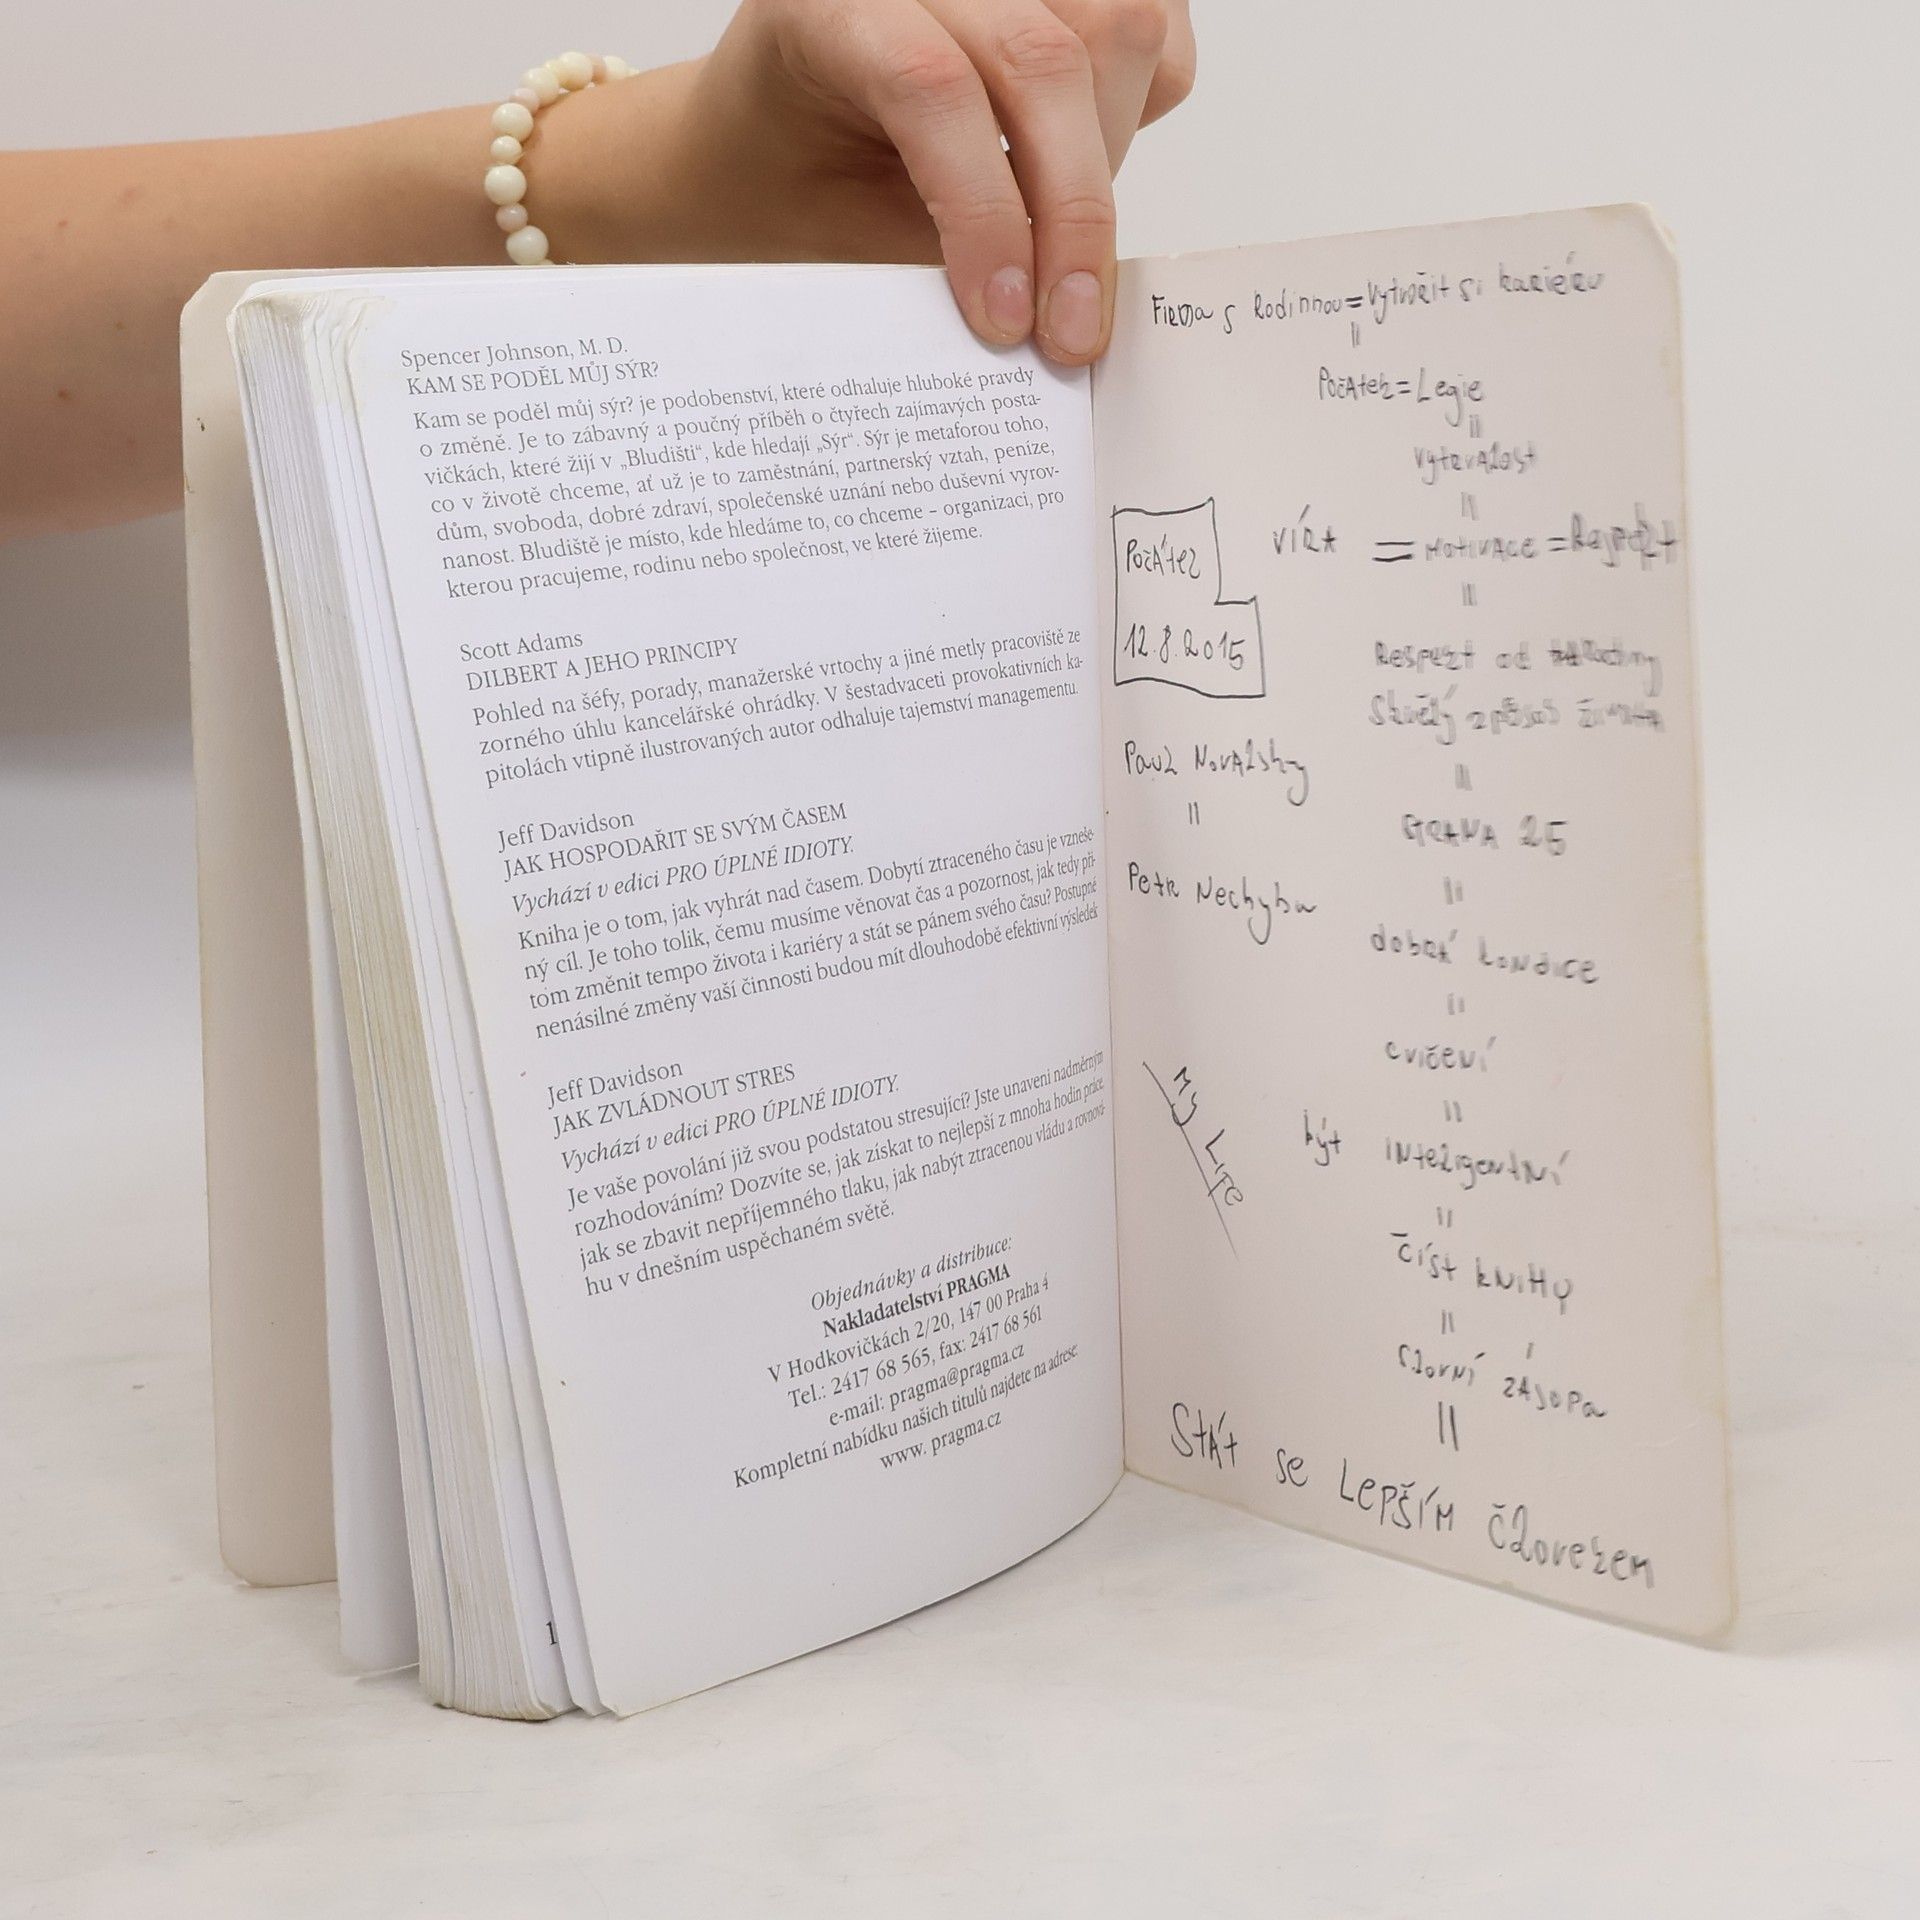 Spencer Johnson, M. D.
KAM SE PODĚL MŮJ SÝR?
Kam se poděl můj sýr? je podobenství, které odhaluje hluboké pravdy
o změně. Je to zábavný a poučný příběh o čtyřech zajímavých posta-
vičkách, které žijí v „Bludišti“, kde hledají „Sýr“. Sýr je metaforou toho,
co v životě chceme, ať už je to zaměstnání, partnerský vztah, peníze,
dům, svoboda, dobré zdraví, společenské uznání nebo duševní vyrov-
nanost. Bludiště je místo, kde hledáme to, co chceme – organizaci, pro
kterou pracujeme, rodinu nebo společnost, ve které žijeme.
Scott Adams
DILBERT A JEHO PRINCIPY
Pohled na šéfy, porady, manažerské vrtochy a jiné metly pracoviště ze
zorného úhlu kancelářské ohrádky. V šestadvaceti provokativních ka-
pitolách vtipně ilustrovaných autor odhaluje tajemství managementu.
Jeff Davidson
JAK HOSPODAŘIT SE SVÝM ČASEM
Vychází v edici PRO ÚPLNÉ IDIOTY.
Kniha je o tom, jak vyhrát nad časem. Dobytí ztraceného času je vzneše-
ný cíl. Je toho tolik, čemu musíme věnovat čas a pozornost, jak tedy při-
tom změnit tempo života i kariéry a stát se pánem svého času? Postupné
nenásilné změny vaší činnosti budou mít dlouhodobě efektivní výsledek
Jeff Davidson
JAK ZVLÁDNOUT STRES
Vychází v edici PRO ÚPLNÉ IDIOTY.
Je vaše povolání již svou podstatou stresující? Jste unaveni nadměrným
rozhodováním? Dozvíte se, jak získat to nejlepší z mnoha hodin práce,
jak se zbavit nepříjemného tlaku, jak nabýt ztracenou vládu a rovnová-
hu v dnešním uspěchaném světě.
Objednávky a distribuce:
Nakladatelství PRAGMA
V Hodkovičkách 2/20, 147 00 Praha 4
Tel.: 2417 68 565, fax: 2417 68 561
e-mail: pragma@pragma.cz
Kompletní nabídku našich titulů najdete na adrese:
www. pragma.cz
1
Firma s Rodinnou = Vytvořit si kariéru
=
Počátek = Legie
=
Vytrvalost
=
VÍRA = MOTIVACE = Respekt
=
Počátek
12.8.2015
Respekt od Rodiny
Skvělý způsob života
=
Paul Novalsky
=
Petr Nechyba
STRANA 25
=
dobrá kondice
=
cvičení
=
být INteligentní
=
číst knihy
=
Slovní zásoba
=
MY LIFE
Stát se Lepším člověkem